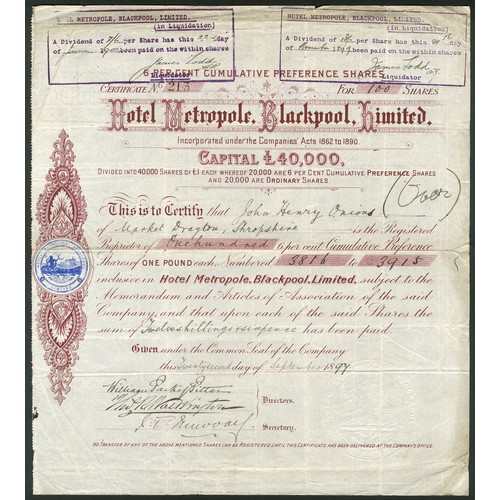 HOTEL METROPOLE, BLACKPOOL, LIMITED.
(in Liquidation)
A Dividend of 2/- per Share has this 22nd day
of June been paid on the within shares
James Todd
Liquidator
HOTEL METROPOLE, BLACKPOOL, LIMITED.
(in Liquidation)
A Dividend of per Share has this day
of 1899 been paid on the within shares
James Todd
Liquidator
6 PER CENT CUMULATIVE PREFERENCE SHARES
CERTIFICATE No 213 FOR 100 SHARES
Hotel Metropole, Blackpool, Limited.
Incorporated under the Companies' Acts 1862 to 1890.
CAPITAL £40,000,
DIVIDED INTO 40,000 SHARES OF £1 EACH WHEREOF 20,000 ARE 6 PER CENT CUMULATIVE PREFERENCE SHARES
AND 20,000 ARE ORDINARY SHARES
(Over)
This is to Certify that John Henry Onions
of Market Drayton, Shropshire is the Registered
Proprietor of One hundred 6 per cent Cumulative Preference
Shares of ONE POUND each, Numbered 3816 to 3915
inclusive in Hotel Metropole, Blackpool, Limited, subject to the
Memorandum and Articles of Association of the said
Company, and that upon each of the said Shares the
sum of Twelve shillings & sixpence has been paid.
Given under the Common Seal of the Company
this Twenty second day of September 1897
William Parke
Directors.
Secretary.
NO TRANSFER OF ANY OF THE ABOVE MENTIONED SHARES CAN BE REGISTERED UNTIL THIS CERTIFICATE HAS BEEN DELIVERED AT THE COMPANY'S OFFICE.